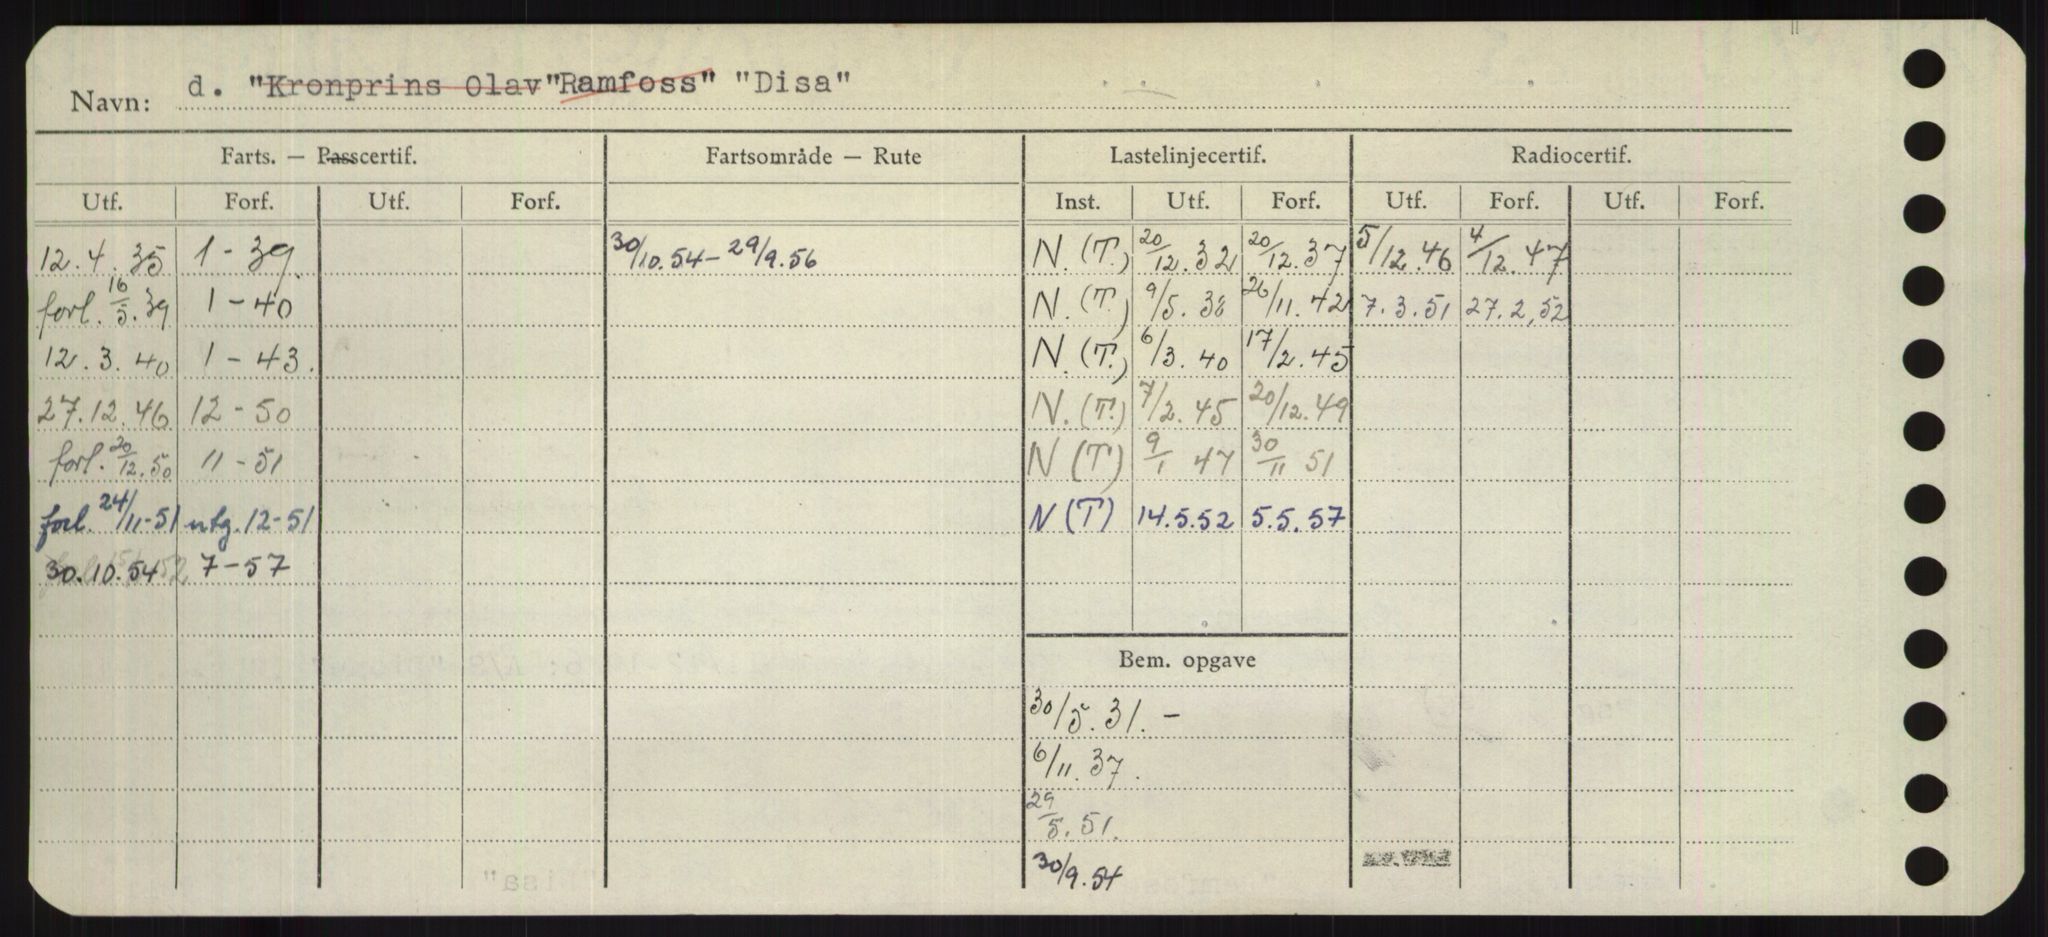 Navn: d. "Kronprins Olav" "Ramfoss" "Disa"
Farts. — Passcertif. Fartsområde — Rute Lastelinjecertif. Radiocertif.
Utf. Forf. Utf. Forf. Inst. Utf. Forf. Utf. Forf. Utf. Forf.
12.4.35 1-39. 30/10.54-29/9.56 N.(T.) 20/12.32 20/12.37 5/12.46 4/12.47
forl. 16/5.39 1-40 N.(T.) 9/5.38 26/11.42 7.3.51 27.2.52
12.3.40 1-43. N.(T.) 6/3.40 17/2.45
27.12.46 12-50 N.(T.) 7/2.45 20/12.49
forl. 20/12.50 11-51 N(T) 9/1 47 30/11 51
forl. 24/11-51 utg. 12-51 N(T) 14.5.52 5.5.57
30.10.54 7-57
Bem. opgave
30/5.31.-
6/11.37.
29/5.51.
30/9.54